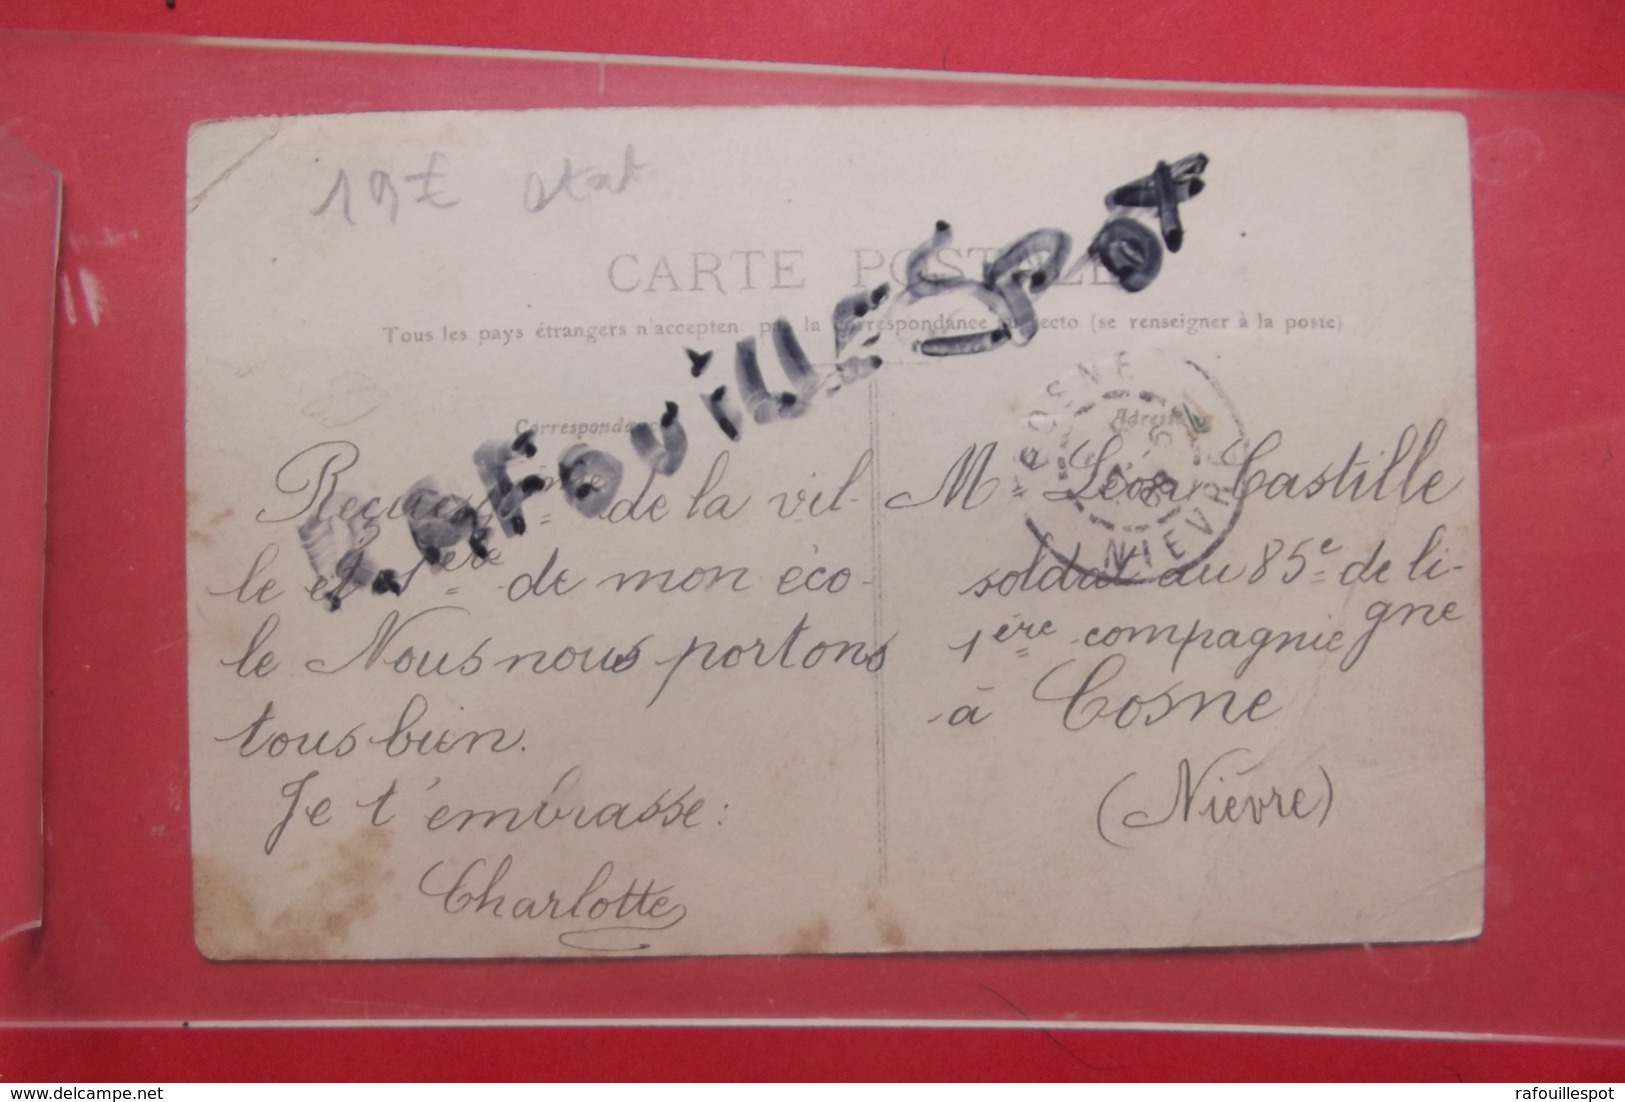 19€ etat
CARTE POSTALE
RAFOUILLESPOT
Tous les pays étrangers n'acceptent pas la correspondance au recto (se renseigner à la poste)
Correspondance
Adresse
COSNE
NIEVRE
de la vil-
le et 1ère de mon éco-
le Nous nous portons
tous bien.
Je t'embrasse:
Charlotte
Mr Léon Castille
soldat au 85e de li-
gne
1ère compagnie
à Cosne
(Nièvre)
delcampe.net
rafouillespot